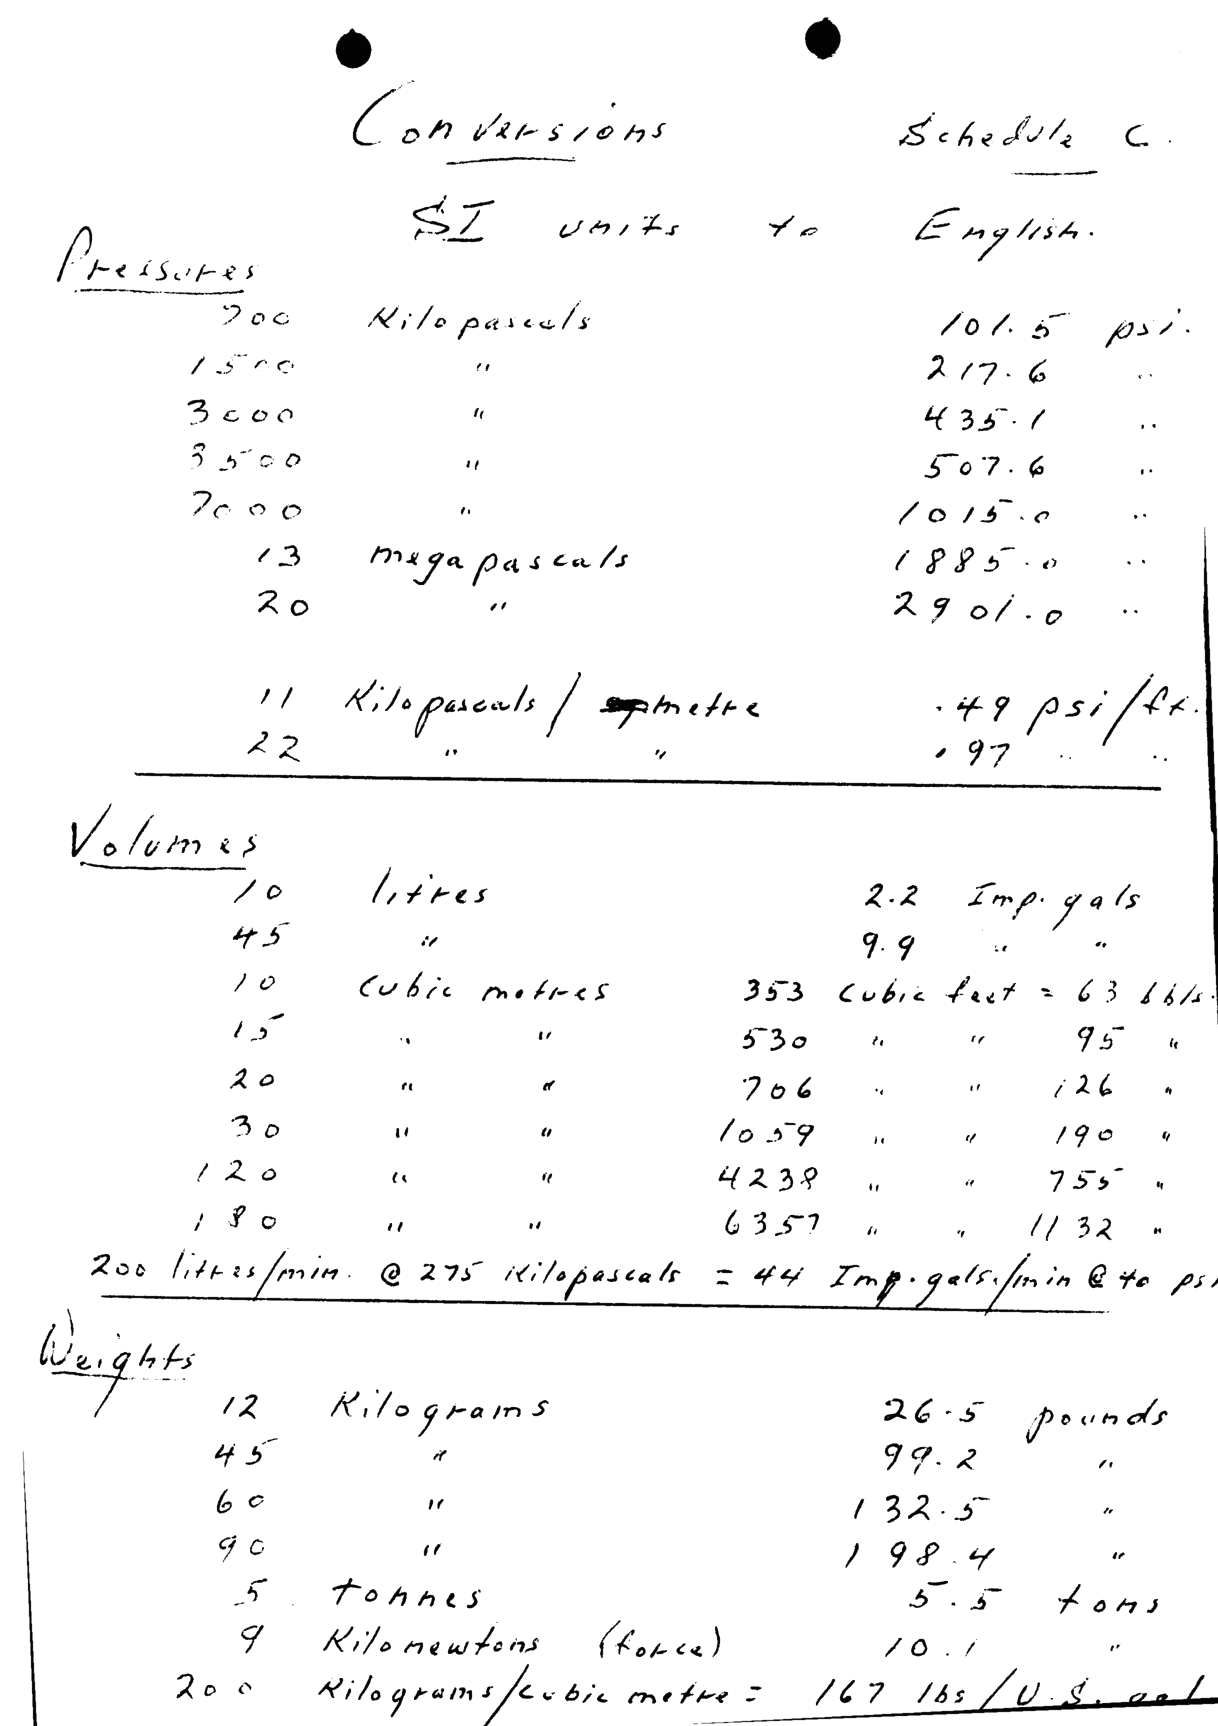 Conversions Schedule C.
SI units to English.
Pressures
700 Kilopascals 101.5 psi.
1500 " 217.6 "
3000 " 435.1 "
3500 " 507.6 "
7000 " 1015.0 "
13 megapascals 1885.0 "
20 " 2901.0 "
11 Kilopascals/ metre .49 psi/ft.
22 " " .97 " "
Volumes
10 litres 2.2 Imp. gals
45 " 9.9 " "
10 cubic metres 353 cubic feet = 63 bbls.
15 " " 530 " " 95 "
20 " " 706 " " 126 "
30 " " 1059 " " 190 "
120 " " 4238 " " 755 "
180 " " 6357 " " 1132 "
200 litres/min. @ 275 Kilopascals = 44 Imp. gals./min @ 40 psi
Weights
12 Kilograms 26.5 pounds
45 " 99.2 "
60 " 132.5 "
90 " 198.4 "
5 tonnes 5.5 tons
9 Kilonewtons (force) 10.1 "
200 Kilograms/cubic metre = 167 lbs/U.S. gal